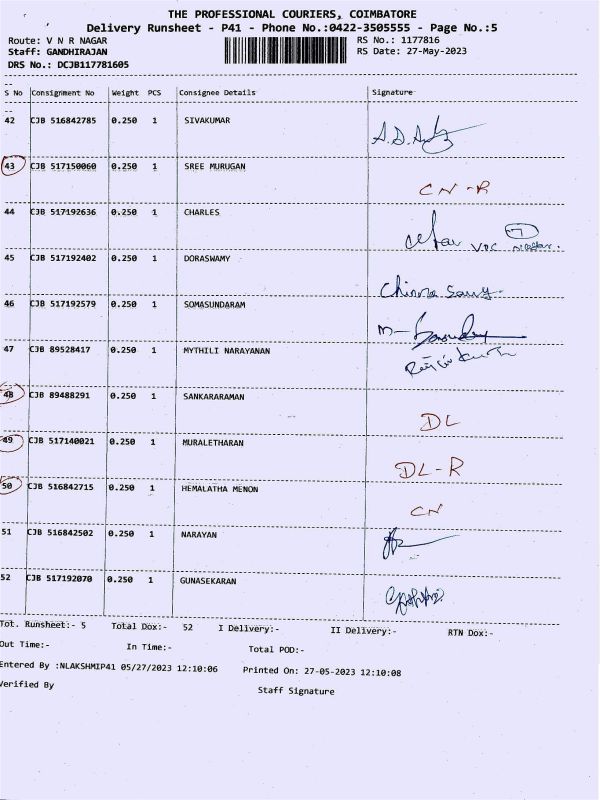 THE PROFESSIONAL COURIERS, COIMBATORE
Delivery Runsheet - P41 - Phone No.:0422-3505555 - Page No.:5
Route: V N R NAGAR RS No.: 1177816
Staff: GANDHIRAJAN RS Date: 27-May-2023
DRS No.: DCJB117781605
S No Consignment No Weight PCS Consignee Details Signature
42 CJB 516842785 0.250 1 SIVAKUMAR
43 CJB 517150060 0.250 1 SREE MURUGAN
CN-R
44 CJB 517192636 0.250 1 CHARLES
7
VOC Nagar.
45 CJB 517192402 0.250 1 DORASWAMY
46 CJB 517192579 0.250 1 SOMASUNDARAM
47 CJB 89528417 0.250 1 MYTHILI NARAYANAN
48 CJB 89488291 0.250 1 SANKARARAMAN
DL
49 CJB 517140021 0.250 1 MURALETHARAN
DL-R
50 CJB 516842715 0.250 1 HEMALATHA MENON
CN
51 CJB 516842502 0.250 1 NARAYAN
52 CJB 517192070 0.250 1 GUNASEKARAN
Tot. Runsheet:- 5 Total Dox:- 52 I Delivery:- II Delivery:- RTN Dox:-
Out Time:- In Time:- Total POD:-
Entered By :NLAKSHMIP41 05/27/2023 12:10:06 Printed On: 27-05-2023 12:10:08
Verified By Staff Signature